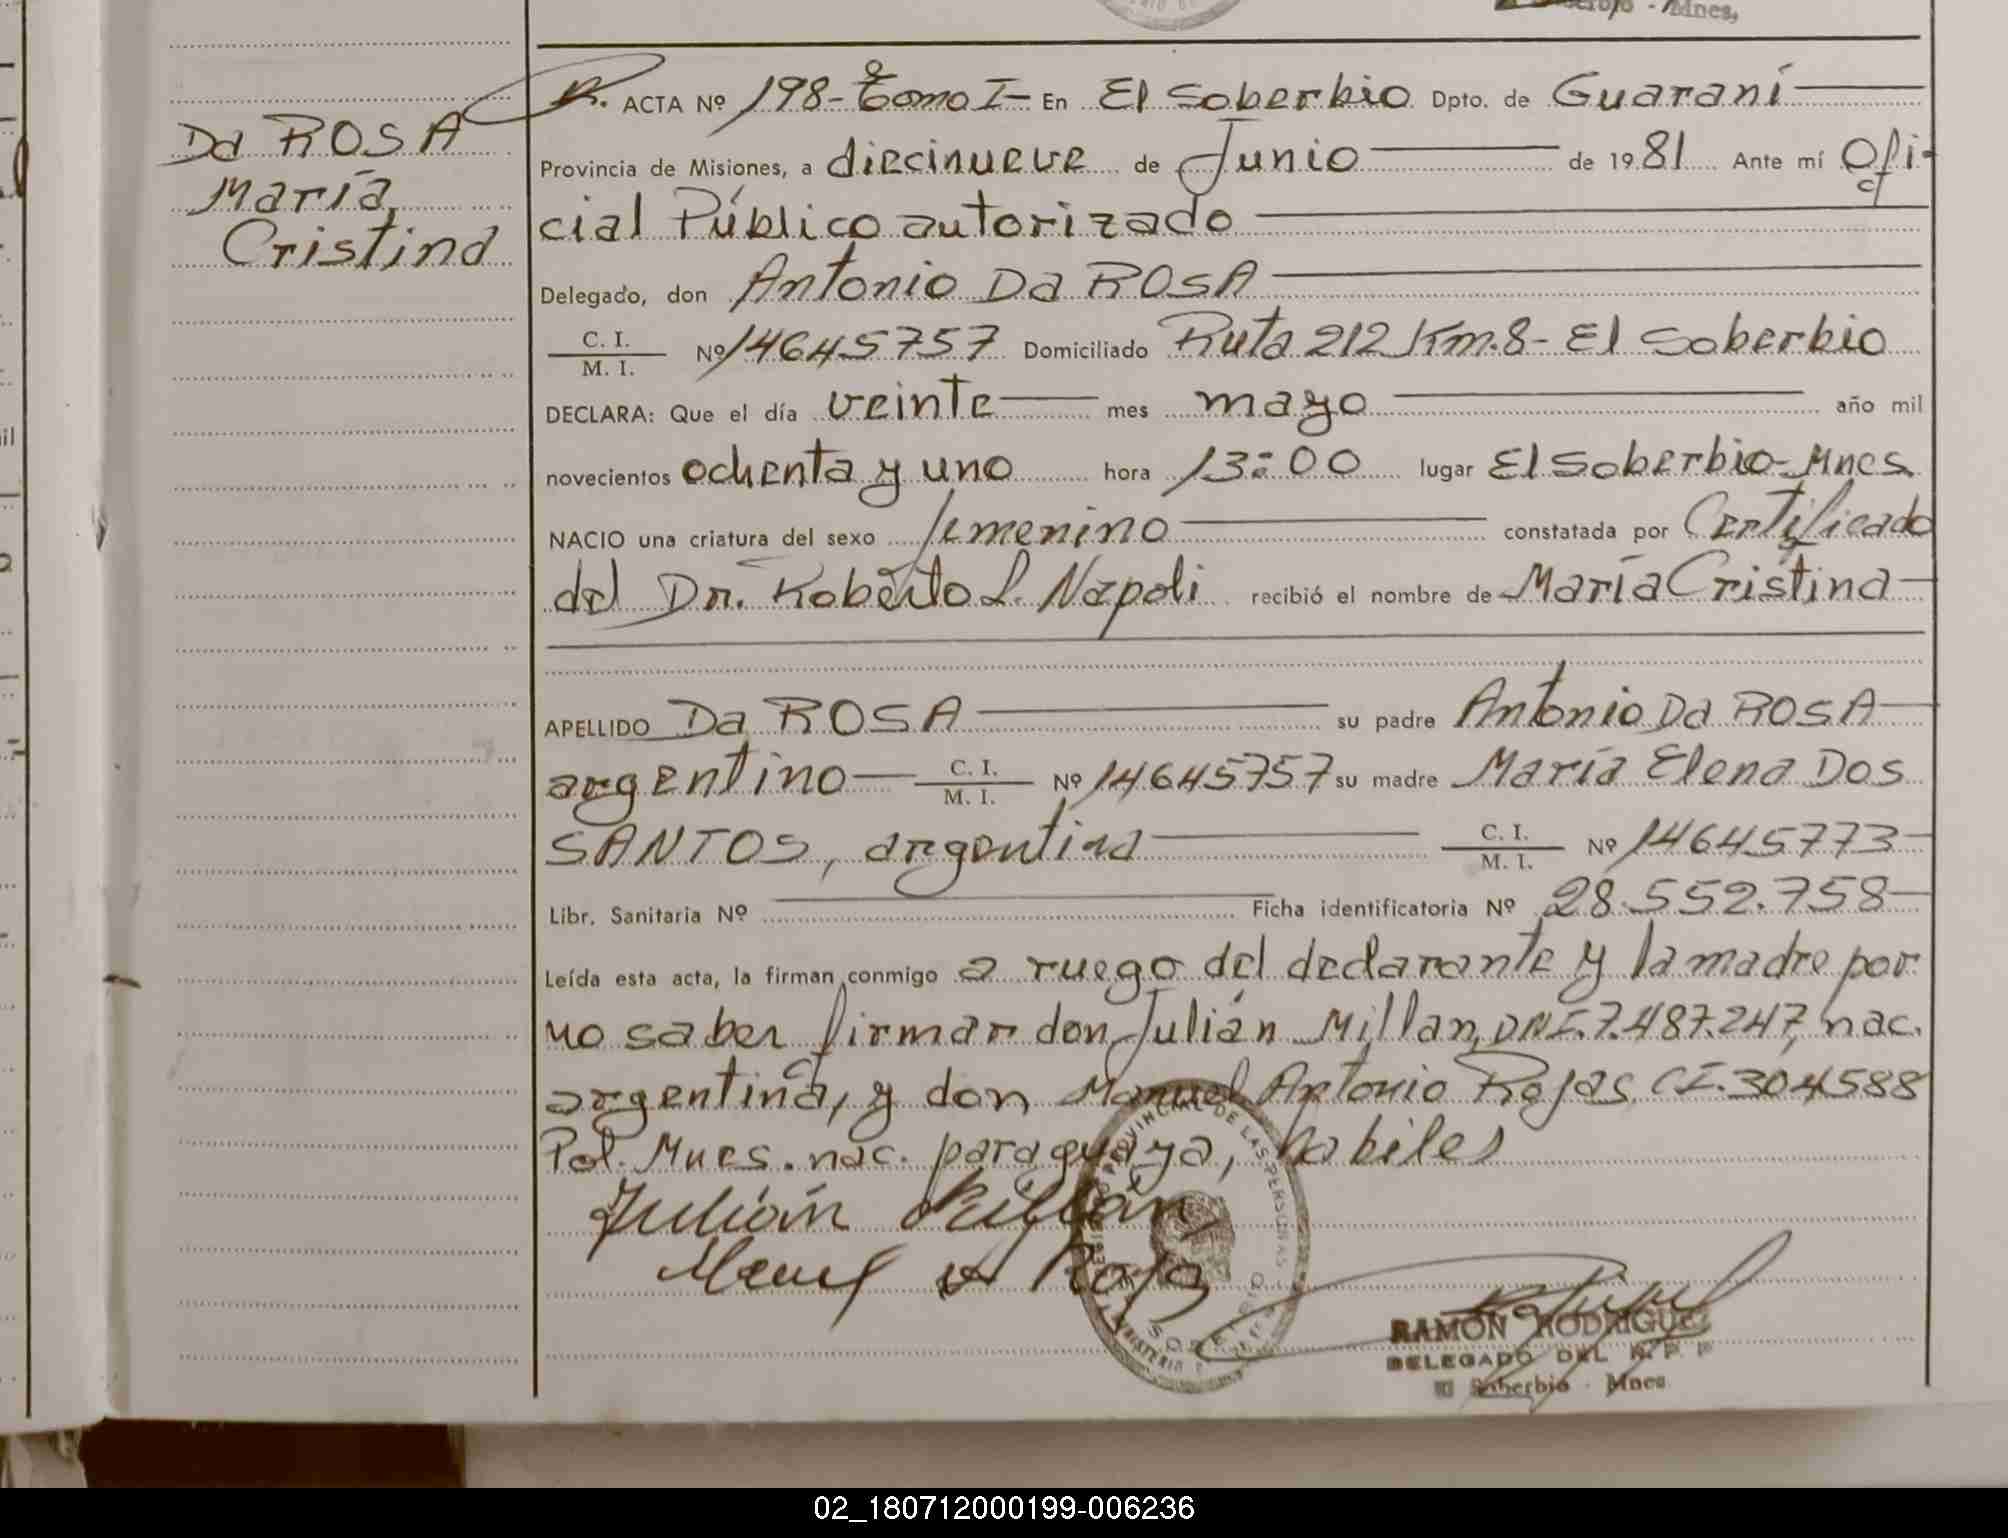 Soberbio - Mnes,
Da ROSA
María
Cristina
R. ACTA Nº 198- Tomo I- En El Soberbio Dpto. de Guaraní
Provincia de Misiones, a diecinueve de Junio de 1981 Ante mí Ofi-
cial Público autorizado
Delegado, don Antonio Da ROSA
C. I.
M. I. Nº 14645757 Domiciliado Ruta 212 Km.8- El Soberbio
DECLARA: Que el día veinte mes mayo año mil
novecientos ochenta y uno hora 13:00 lugar El Soberbio-Mnes
NACIO una criatura del sexo femenino constatada por Certificado
del Dr. Roberto L. Napoli recibió el nombre de María Cristina
APELLIDO Da ROSA su padre Antonio Da ROSA
argentino C. I.
M. I. Nº 14645757 su madre María Elena Dos
SANTOS, argentina C. I.
M. I. Nº 14645773
Libr. Sanitaria Nº Ficha identificatoria Nº 28.552.758
Leída esta acta, la firman conmigo a ruego del declarante y la madre por
no saber firmar don Julián Millan, DNI.7.487.247, nac.
argentina, y don Manuel Antonio Rojas, CI.304588
Pol. Mnes. nac. paraguaya, habiles
Julián Millan
Manuel A Rojas
PROVINCIAL DE LAS PERSONAS
RAMON RODRIGUEZ
DELEGADO DEL R. P. P
El Soberbio - Mnes
02_180712000199-006236